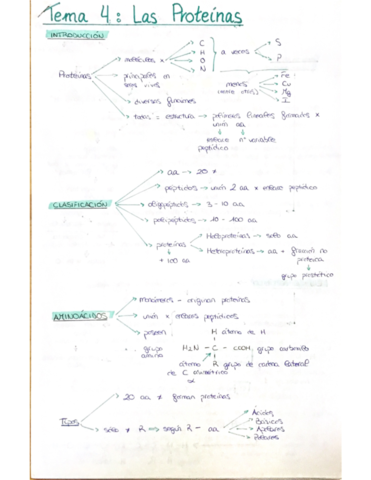 Tema 4: Las Proteínas
INTRODUCCIÓN
Proteínas
moléculas x
C
H
O
N
a veces
S
P
principales en
seres vivos
menos
Fe
Cu
Mg
I
diversas funciones
todas = estructura → polímeros lineales formados x
unión aa
enlace
peptídico
nº variable
CLASIFICACIÓN
aa → 20 ≠
péptidos → unión 2 aa x enlace peptídico
oligopéptidos → 3-10 aa
polipéptidos → 10-100 aa
proteínas
+ 100 aa
Holoproteínas → sólo aa
Heteroproteínas → aa + porción no
proteica
grupo prostético
AMINOÁCIDOS
Monómeros - originan proteínas
unión x enlaces peptídicos
poseen:
H átomo de H
grupo
amino
H2N - C - COOH grupo carboxilo
átomo
de C asimétrico
R grupo de cadena lateral
Tipos
20 aa ≠ forman proteínas
sólo ≠ R → según R - aa
Ácidos
Básicos
Apolares
Polares